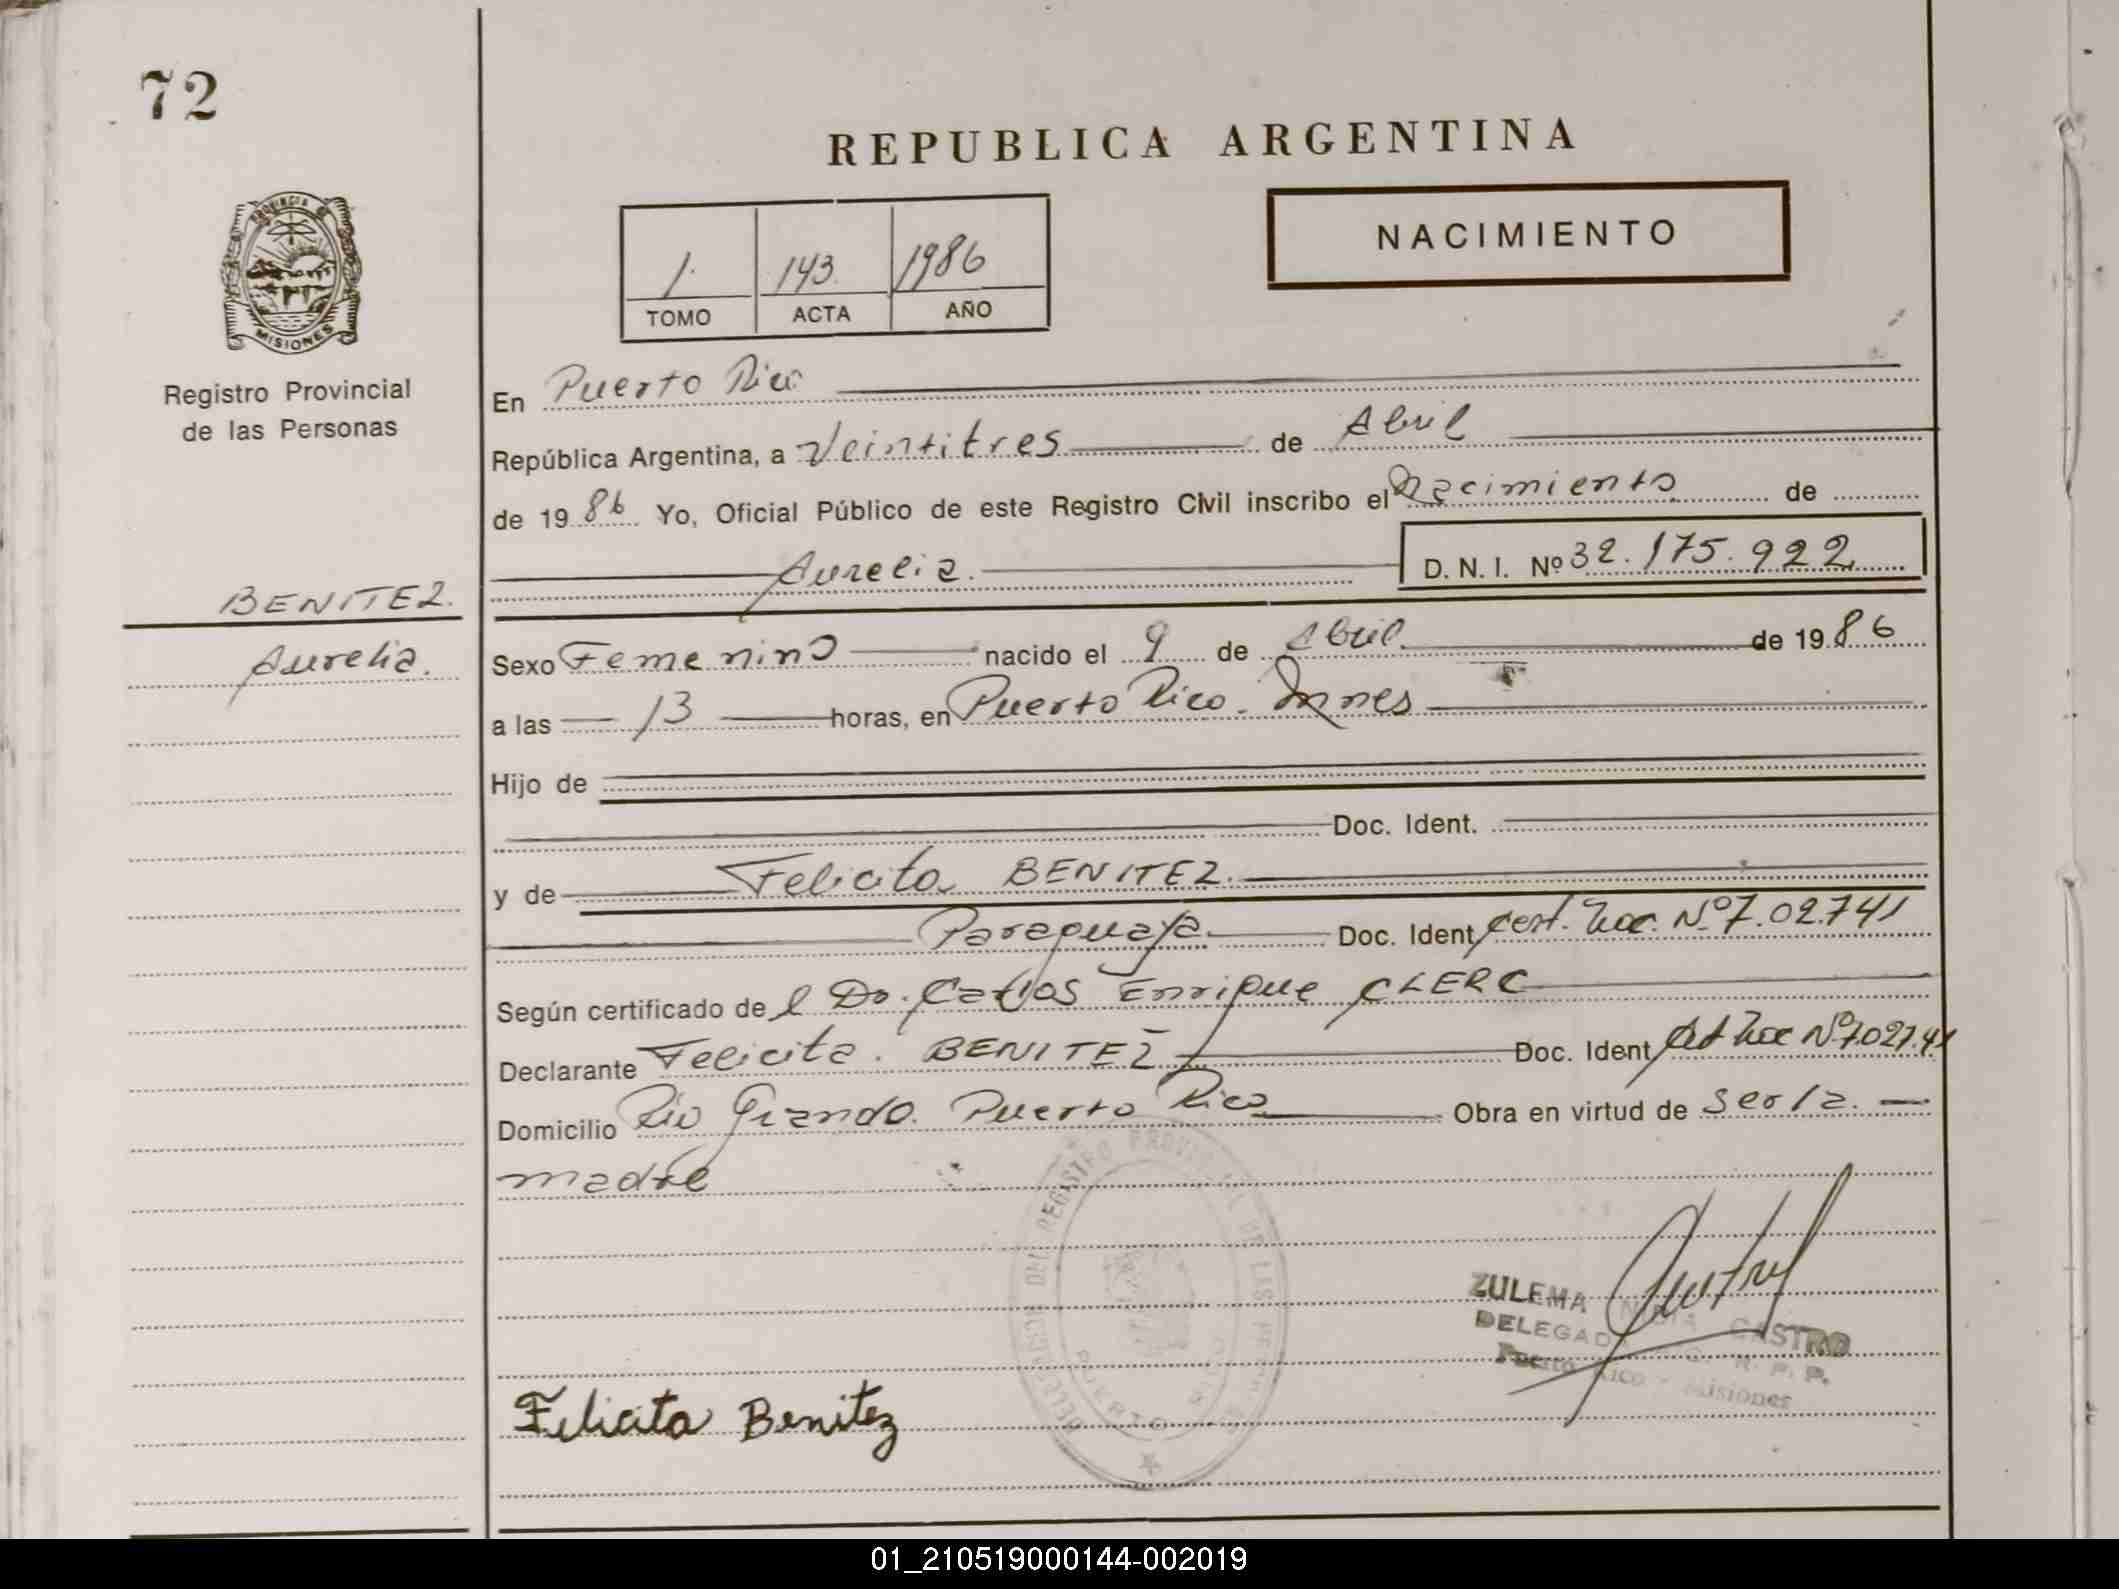 72
REPUBLICA ARGENTINA
NACIMIENTO
1. 143. 1986
TOMO ACTA AÑO
PROVINCIA DE
MISIONES
Registro Provincial
de las Personas
En Puerto Rico
República Argentina, a Veintitres de Abril
de 1986 Yo, Oficial Público de este Registro Civil inscribo el Nacimiento de
Aurelia. D. N. I. Nº 32.175.922
BENITEZ.
Aurelia.
Sexo Femenino nacido el 9 de Abril. de 1986
a las 13 horas, en Puerto Rico. Mnes
Hijo de
Doc. Ident.
y de Felicita BENITEZ.
Paraguaya. Doc. Ident Cert. Nº 7.02.741
Según certificado del Dr. Carlos Enrique CLERC
Declarante Felicita. BENITEZ Doc. Ident Nº 7.027.41
Domicilio Rio Grande. Puerto Rico Obra en virtud de ser la.
madre
DELEGACION DEL REGISTRO PROVINCIAL DE LAS PERSONAS
PUERTO RICO
ZULEMA CASTRO
DELEGADA R. P. P.
Puerto Rico - Misiones
Felicita Benitez
01_210519000144-002019